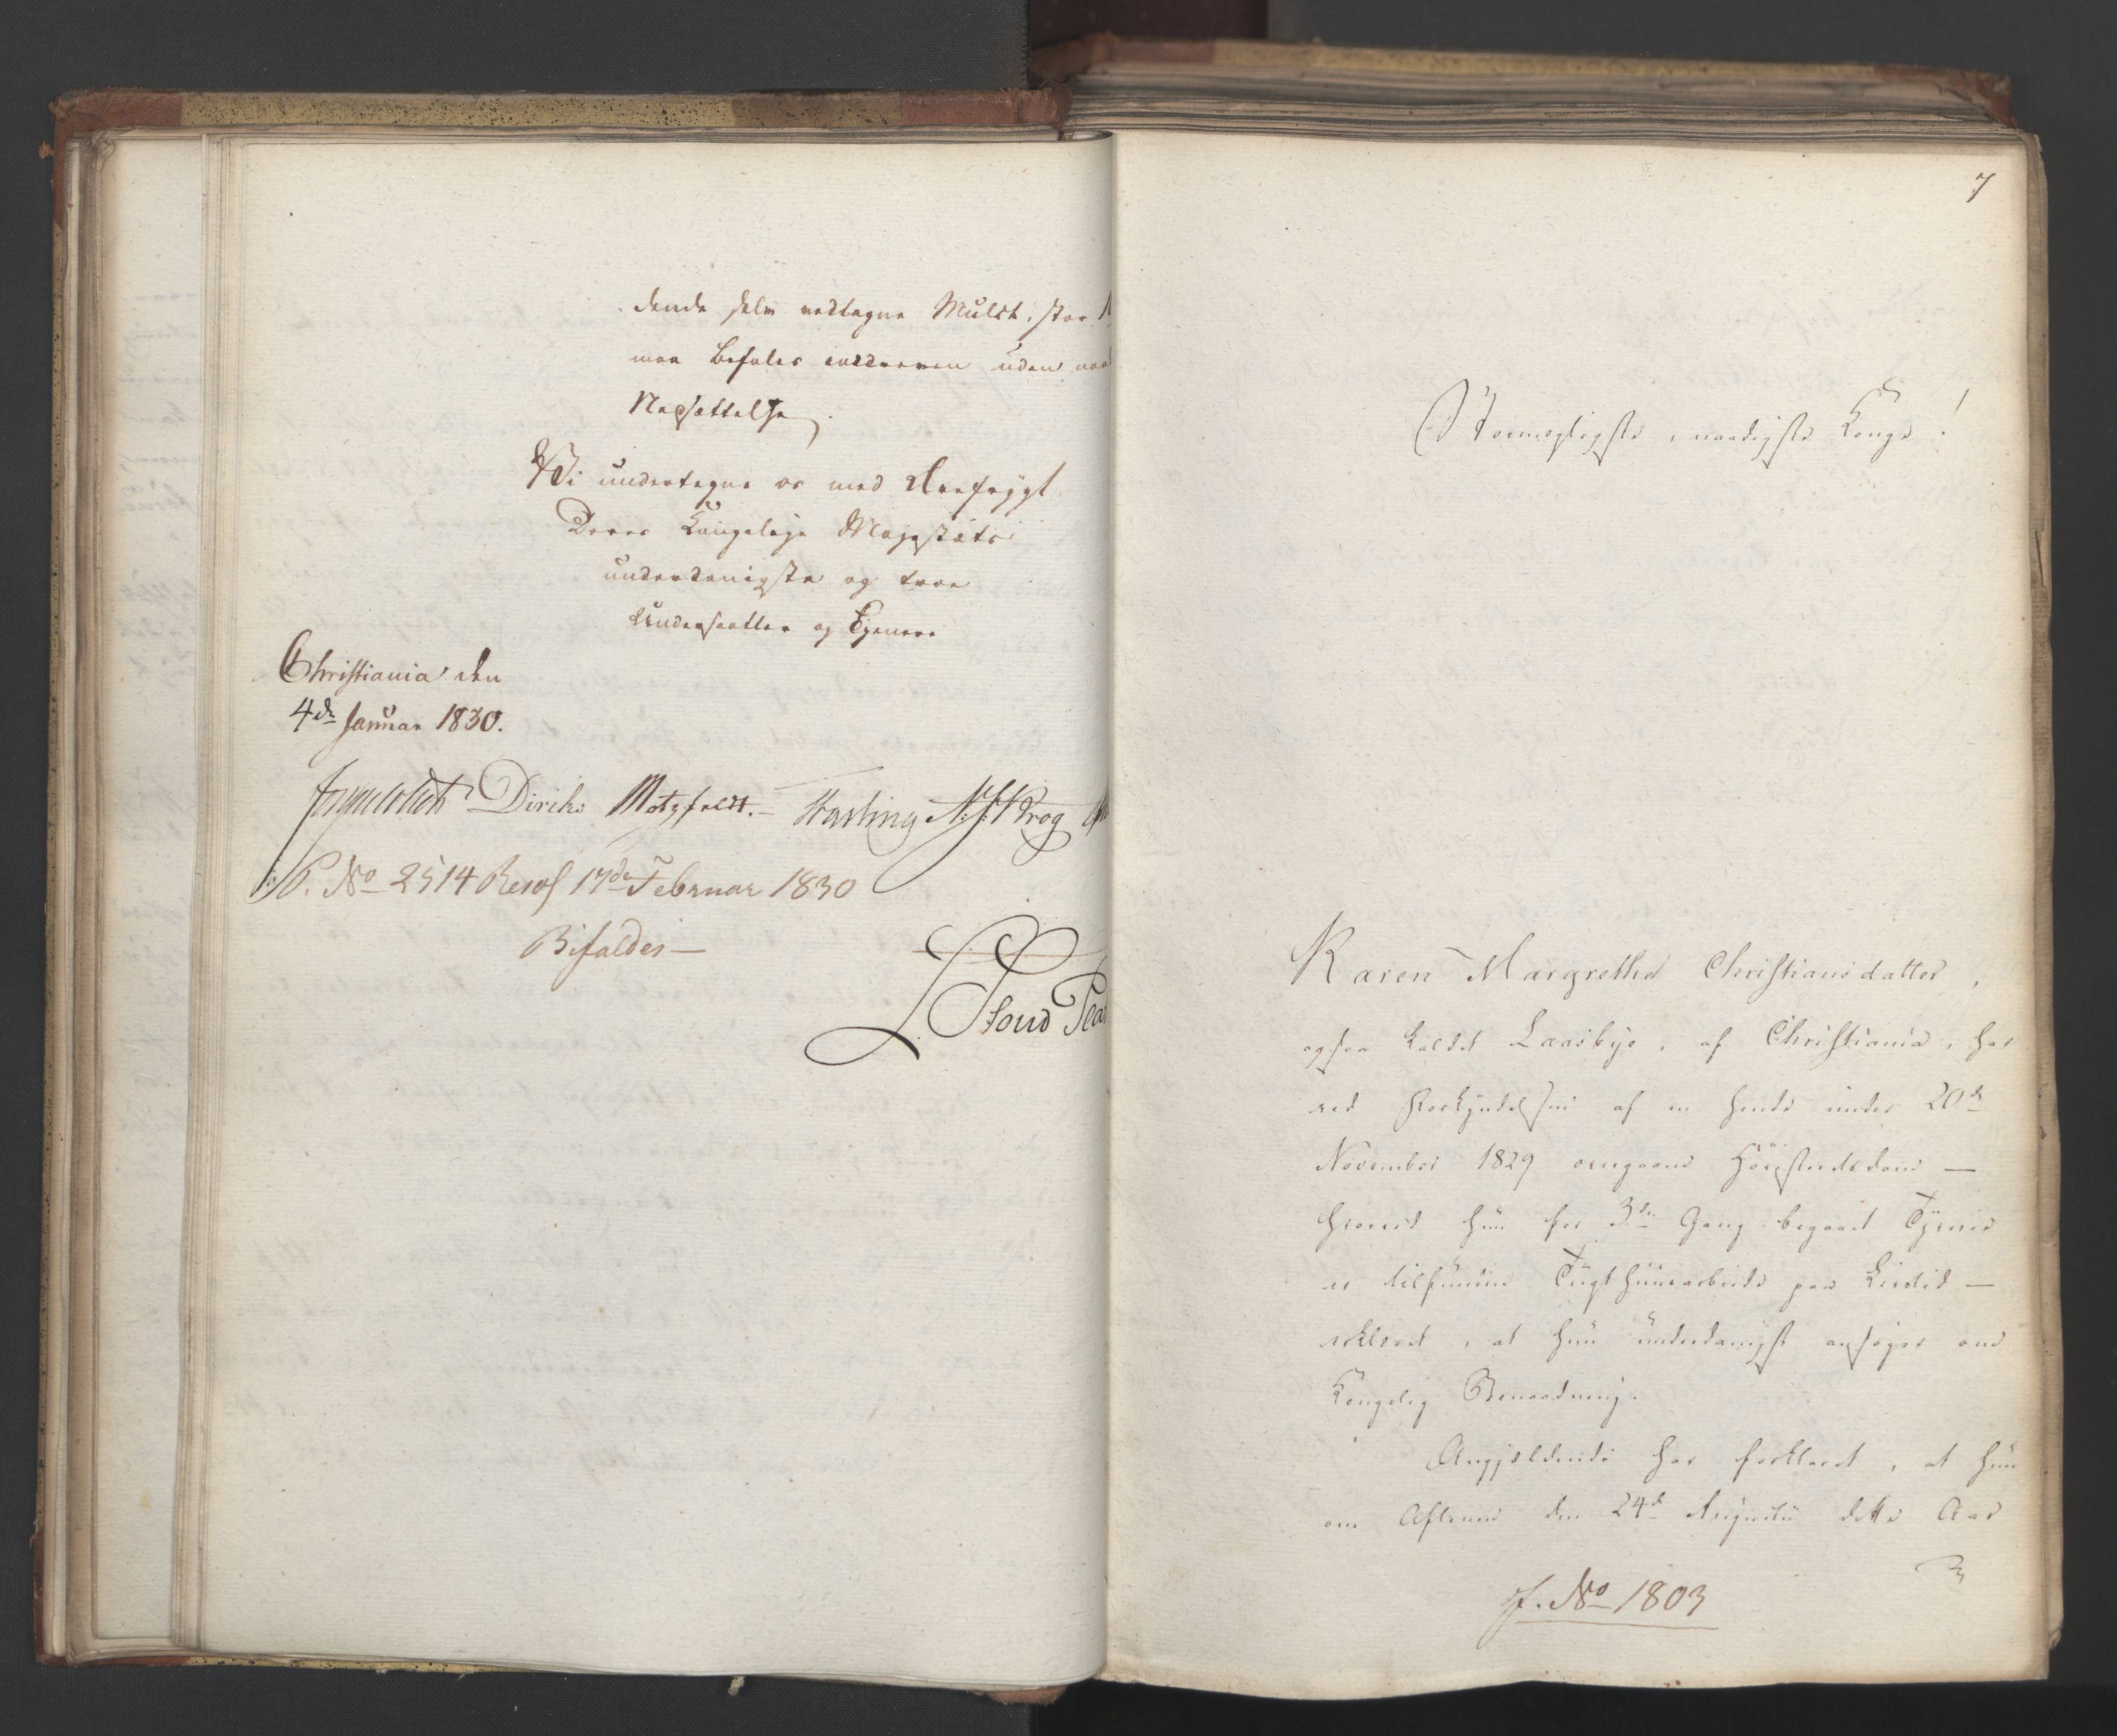 dende selv vedtagne Mulct, stor
maa befales inddreven uden
Nedsættelse.
Vi undertegne os med Ærefrygt
Deres Kongelige Majestæts
underdanigste og troe
Undersaatter og Tjenere
Christiania den
4de Januar 1830.
Diriks Motzfeldt.- Fasting N.J. Krog
P. No 2514 Resol 17de Februar 1830
Bifaldes—
7
Stormægtigste, naadigste Konge!
Karen Margrethe Christiansdatter,
ogsaa kaldet Laasbye, af Christiania, har
ved Forkyndelsen af en hende under 20de
November 1829 overgaaet Høiesteretsdom —
hvorved hun for 3die Gang begaaet Tyverie
er tilfunden Tugthuusarbeide paa Livstid —
erklæret, at hun underdanigst ansøger om
Kongelig Benaadning.
Angjeldende har forklaret, at hun
om Aftenen den 24de Augusti dette Aar
J. No 1803